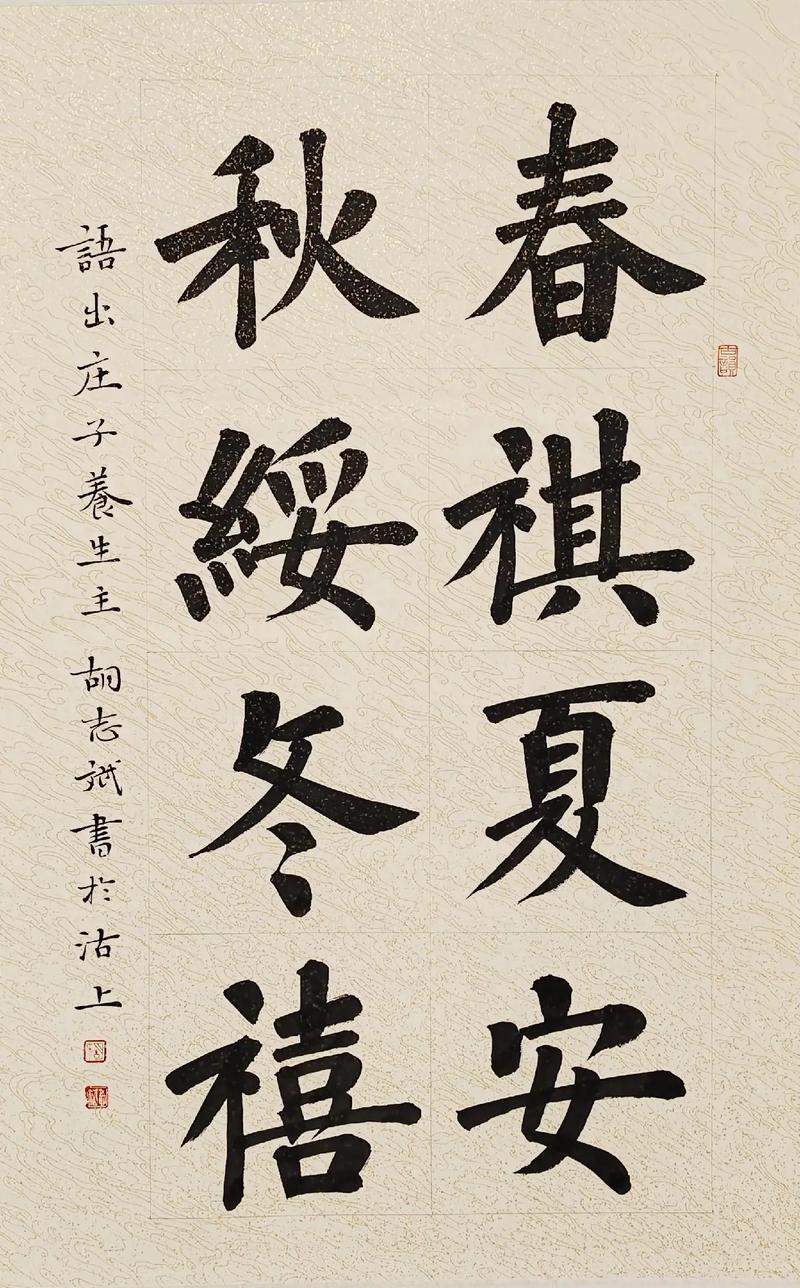 春祺夏安
秋綏冬禧
語出庄子養生主 胡志斌書於沽上